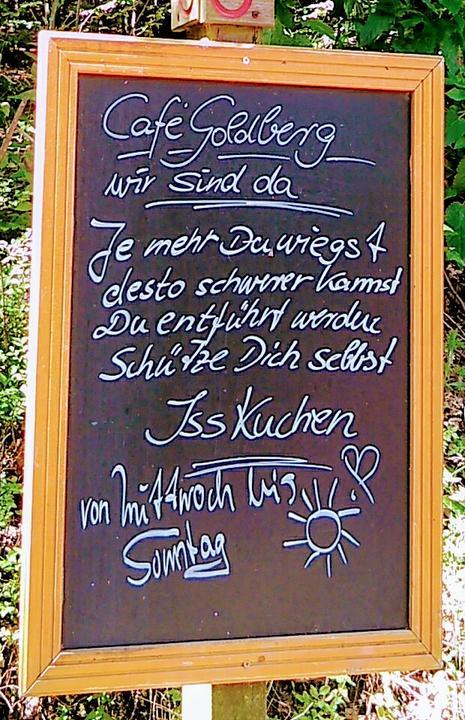 Café Goldberg
wir sind da
Je mehr Du wiegst
desto schwerer kannst
Du entführt werden
Schütze Dich selbst
Iss Kuchen
von Mittwoch bis
Sonntag